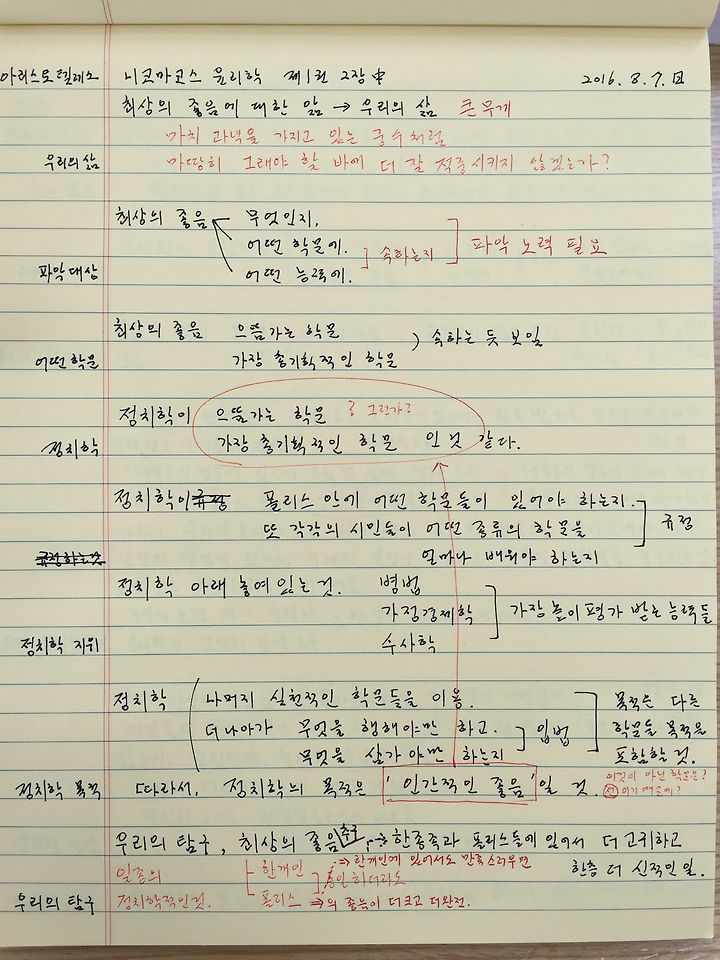 아리스토텔레스 니코마코스 윤리학 제1권 2장 中 2016. 8. 7. 日
최상의 좋음에 대한 앎 → 우리의 삶 큰 무게
마치 과녁을 가지고 있는 궁수처럼
우리의 삶 마땅히 그래야 할 바에 더 잘 적중시키지 않겠는가?
최상의 좋음 무엇인지,
어떤 학문에. 속하는지 파악 노력 필요
파악대상 어떤 능력에.
최상의 좋음 으뜸가는 학문 속하는 듯 보임
어떤 학문 가장 총기획적인 학문
정치학이 으뜸가는 학문 ? 그런가?
정치학 가장 총기획적인 학문 인 것 같다.
정치학이 규정 폴리스 안에 어떤 학문들이 있어야 하는지.
또 각각의 시민들이 어떤 종류의 학문을 규정
규정하는것 얼마나 배워야 하는지
정치학 아래 놓여 있는 것. 병법
가정경제학 가장 높이 평가 받는 능력들
정치학 지위 수사학
정치학 나머지 실천적인 학문들을 이용. 목적은 다른
더 나아가 무엇을 행해야만 하고. 입법 학문들 목적을
무엇을 삼가야만 하는지 포함할 것.
정치학 목적 따라서, 정치학의 목적은 '인간적인 좋음'일 것. 이것이 아닌 학문은?
이기 때문에?
우리의 탐구, 최상의 좋음 추구 → 한 종족과 폴리스들에 있어서 더 고귀하고
일종의 한 개인 → 한 개인에 있어서도 만족스러우면 한층 더 신적인 일.
동일하더라도
우리의 탐구 정치학적인 것. 폴리스 ⇒ 의 좋음이 더 크고 더 완전.